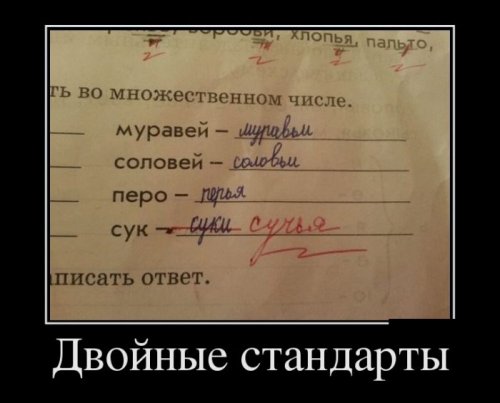 воробьи, хлопья, пальто,
ть во множественном числе.
муравей – муравьи
соловей – соловьи
перо – перья
сук – суки сучья
писать ответ.
Двойные стандарты